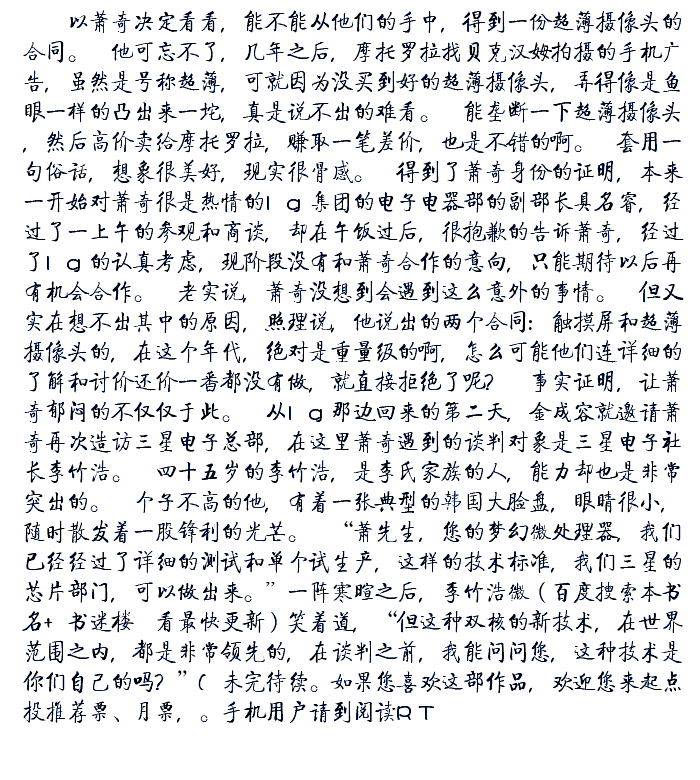 以萧奇决定看看，能不能从他们的手中，得到一份超薄摄像头的
合同。 他可忘不了，几年之后，摩托罗拉找贝克汉姆拍摄的手机广
告，虽然是号称超薄，可就因为没买到好的超薄摄像头，弄得像是鱼
眼一样的凸出来一坨，真是说不出的难看。 能垄断一下超薄摄像头
，然后高价卖给摩托罗拉，赚取一笔差价，也是不错的啊。 套用一
句俗话，想象很美好，现实很骨感。 得到了萧奇身份的证明，本来
一开始对萧奇很是热情的lg集团的电子电器部的副部长具名睿，经
过了一上午的参观和商谈，却在午饭过后，很抱歉的告诉萧奇，经过
了lg的认真考虑，现阶段没有和萧奇合作的意向，只能期待以后再
有机会合作。 老实说，萧奇没想到会遇到这么意外的事情。 但又
实在想不出其中的原因，照理说，他说出的两个合同：触摸屏和超薄
摄像头的，在这个年代，绝对是重量级的啊，怎么可能他们连详细的
了解和讨价还价一番都没有做，就直接拒绝了呢？ 事实证明，让萧
奇郁闷的不仅仅于此。 从lg那边回来的第二天，金成容就邀请萧
奇再次造访三星电子总部，在这里萧奇遇到的谈判对象是三星电子社
长李竹浩。 四十五岁的李竹浩，是李氏家族的人，能力却也是非常
突出的。 个子不高的他，有着一张典型的韩国大脸盘，眼睛很小，
随时散发着一股锋利的光芒。 “萧先生，您的梦幻微处理器，我们
已经经过了详细的测试和单个试生产，这样的技术标准，我们三星的
芯片部门，可以做出来。”一阵寒暄之后，李竹浩微（百度搜索本书
名+ 书迷楼 看最快更新）笑着道，“但这种双核的新技术，在世界
范围之内，都是非常领先的，在谈判之前，我能问问您，这种技术是
你们自己的吗？”（ 未完待续。如果您喜欢这部作品，欢迎您来起点
投推荐票、月票，。手机用户请到阅读RT